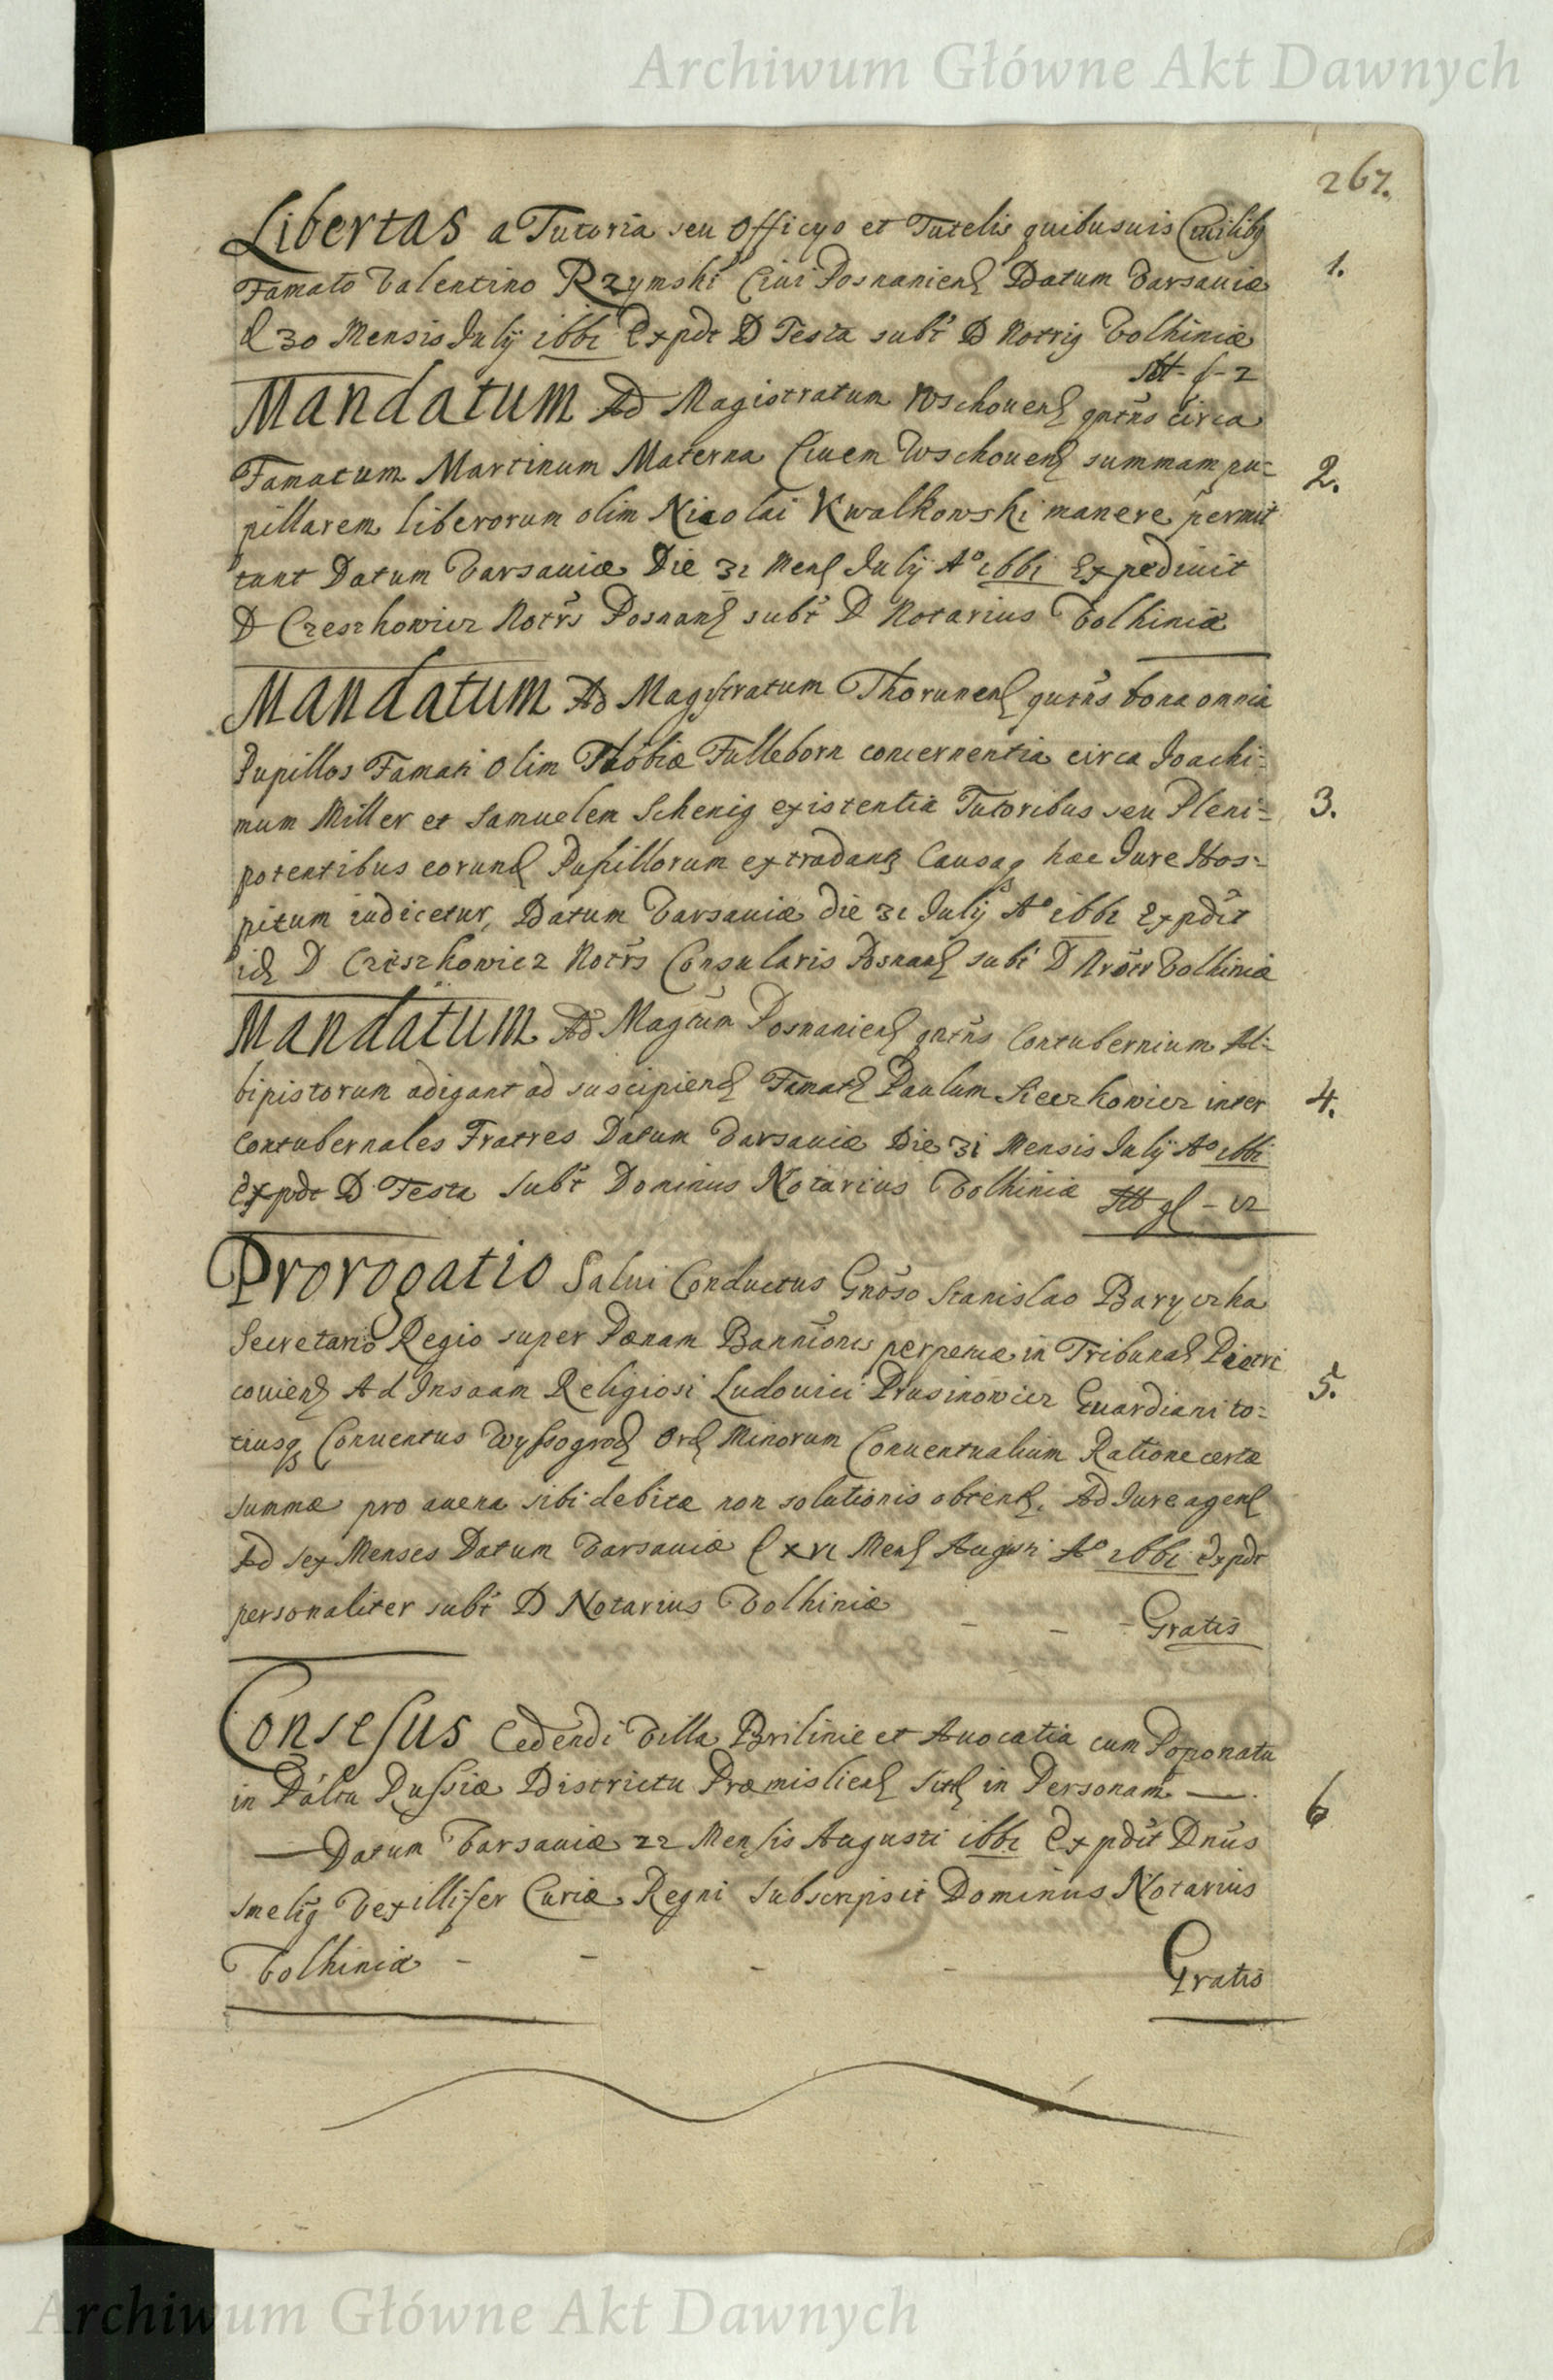 Archiwum Główne Akt Dawnych
267.
Libertas a Tutoria seu Officyo et Tutelis quibusuis Ciuilibq
Famato Valentino Rzymski Ciui Posnanien Datum Varsauiæ 1.
d 30 Mensis July 1661 Expdt D Testa subt D Notrig Volhiniæ
f - 2
Mandatum Ad Magistratum Wschouen qntns circa
Famatum Martinum Materna Ciuem Wschouen summam pu= 2.
pillarem liberorum olim Nicolai Kwalkowski manere permit
tant Datum Varsauiæ Die 31 Men July Aº 1661 Expediuit
D Czeszkowicz Notrs Posnan subt D Notarius Volhiniæ
Mandatum Ad Magistratum Thorunen qutns bona omnia
Pupillos Famati Olim Thobiæ Fulleborn concernentia circa Joachi=
mum Miller et Samuelem Schenig existentia Tutoribus seu Pleni= 3.
potentibus eorund Pupillorum extradant Causaq hac Jure Hos=
pitum iudicetur, Datum Varsauiæ die 31 July Aº 1661 Expdit
id D Czeszkowicz Notrs Consularis Posnan subt D Volhiniæ
Mandatum Ad Magtum Posnanien qntns Contubernium Al=
bipistorum adigant ad suscipiend Famat Paulum Sieczkowicz inter 4.
Contubernales Fratres Datum Varsauiæ Die 31 Mensis July Aº 1661
Expdt D Testa Subt Dominus Notarius Volhiniæ gl - 12
Prorogatio Salui Conductus Gnoso Stanislao Baryczka
Secretario Regio super Pœnam Bannionis perpetuæ in Tribunal Piotri
couien Ad Instaam Religiosi Ludouici Prusinowicz Guardiani to= 5.
tiusq Conuentus Wyssogrod Ord Minorum Conuentualium Ratione certæ
summæ pro auena sibi debitæ non solutionis obtent. Ad Jure agend
Ad sex Menses Datum Varsauiæ d xvi Men Augusti Aº 1661 Expdt
personaliter subt D Notarius Volhiniæ - - - Gratis
Consesus Cedendi Villa Brilinie et Auocatia cum Poponatu
in Palttu Russiæ Districtu Præmislien Sit in Personam —
— Datum Varsauiæ 22 Mensis Augusti 1661 Expdit Dnus 6
Smelig Vexillifer Curiæ Regni Subscripsit Dominus Notarius
Volhiniæ - - - - Gratis
Archiwum Główne Akt Dawnych